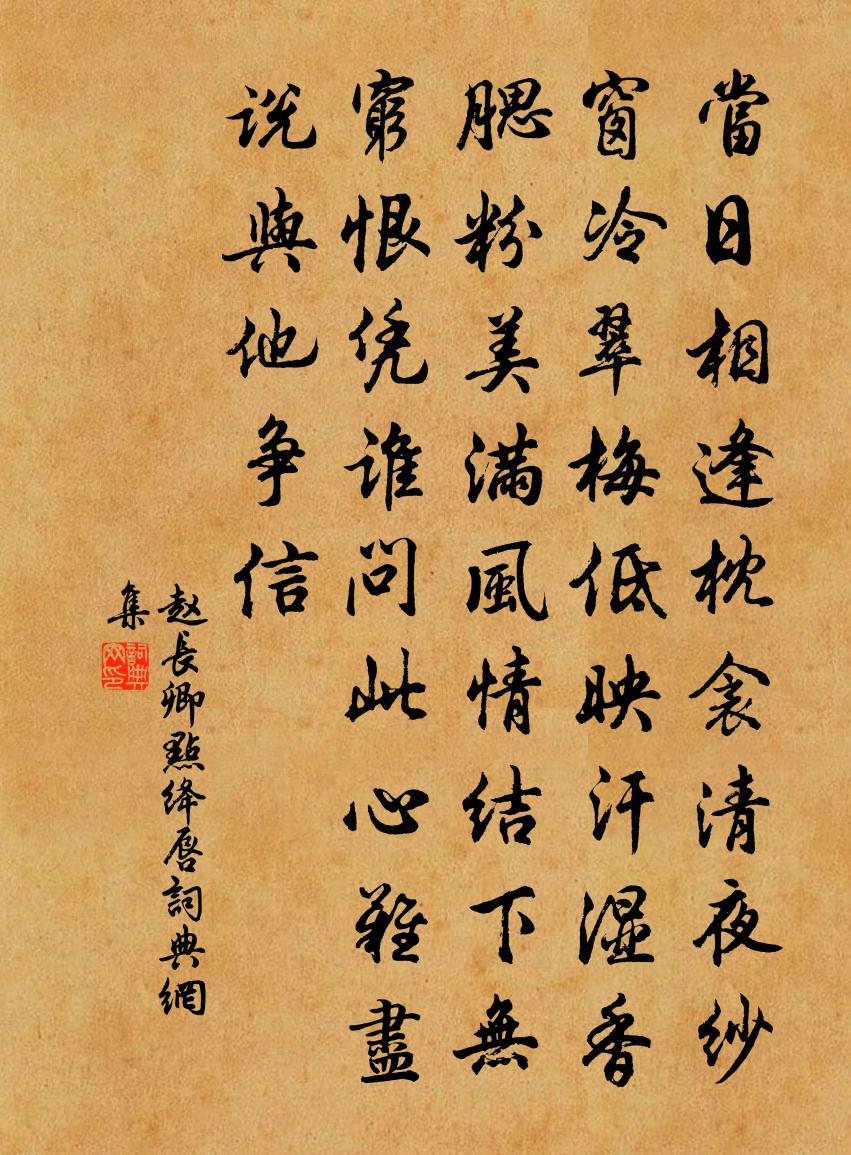 當日相逢枕衾清夜紗
窗冷翠梅低映汗湿香
腮粉美满風情結下無
窮恨凭谁问此心難盡
说與他争信
赵長卿點绛唇詞典網
集
詞典网印